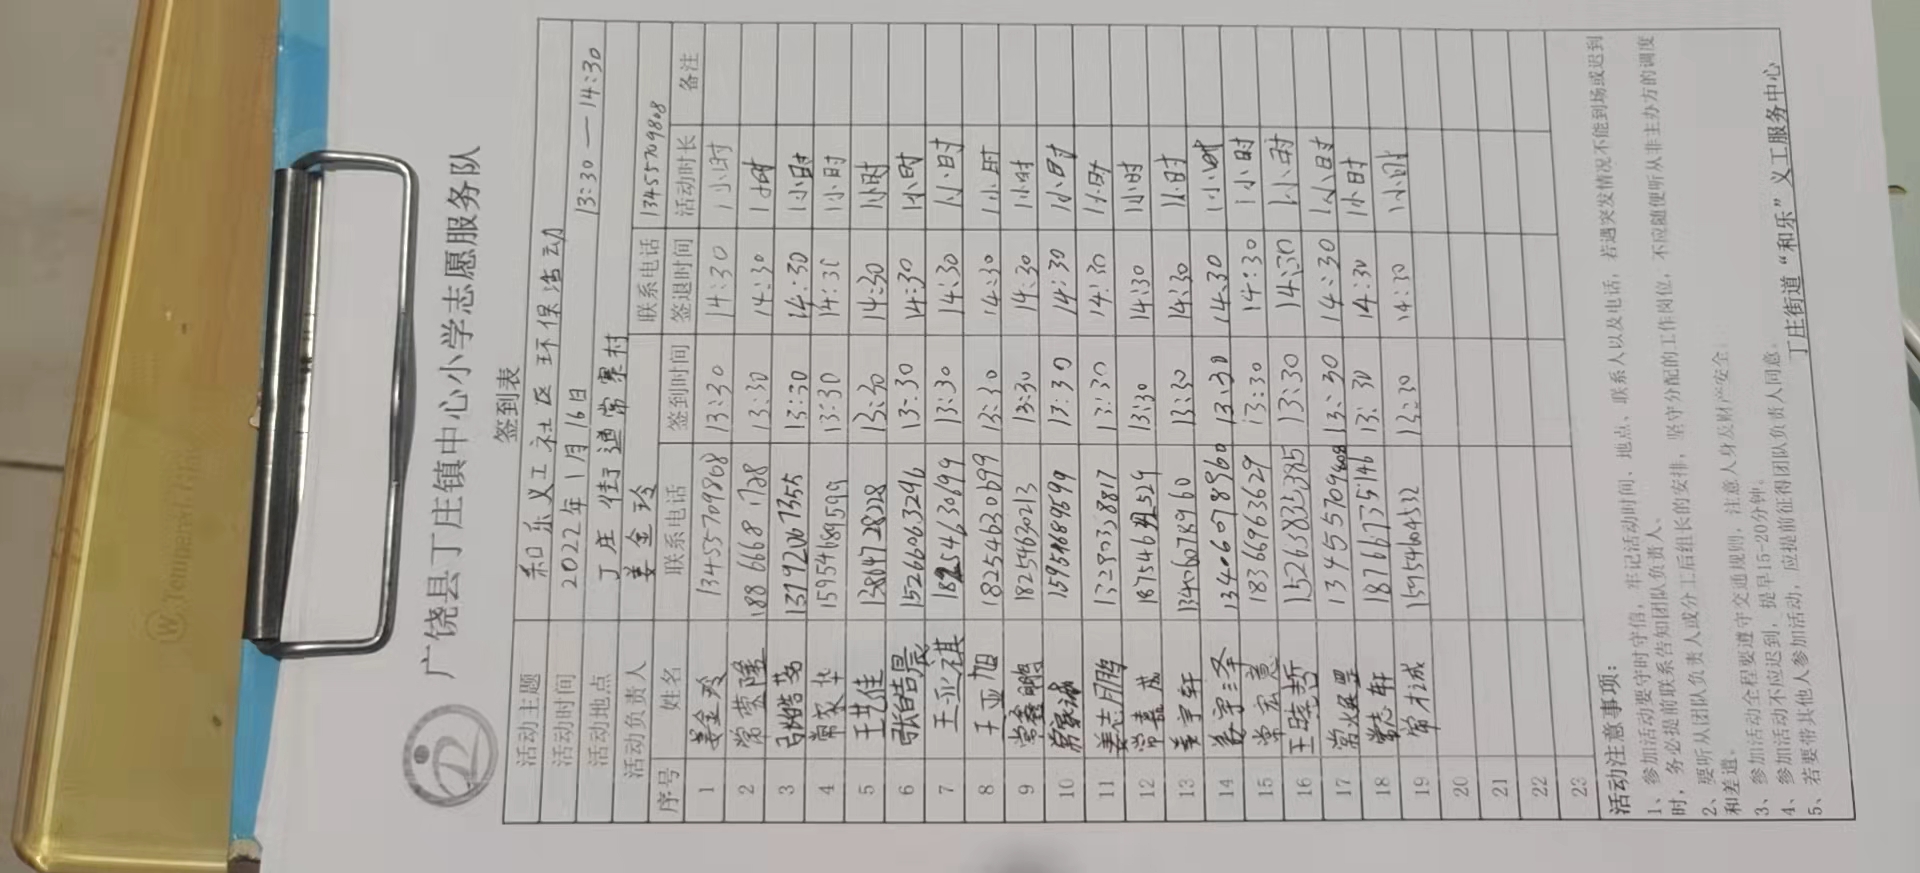 广饶县丁庄镇中心小学志愿服务队
签到表
活动主题 和乐义工社区环保活动
活动时间 2022年1月16日 13:30—14:30
活动地点 丁庄街道常寨村
活动负责人 姜金玲 联系电话 13455709808
序号 姓名 联系电话 签到时间 签退时间 活动时长 备注
1 姜金玲 13455709808 13:30 14:30 1小时
2 常荣隆 188 6668 1728 13:30 14:30 1小时
3 张皓茹 13792067355 13:30 14:30 1小时
4 常家华 15954689599 13:30 14:30 1小时
5 王艺佳 13864728228 13:30 14:30 1小时
6 张皓晨 15266063296 13:30 14:30 1小时
7 王亚祺 18254630699 13:30 14:30 1小时
8 王亚旭 18254630699 13:30 14:30 1小时
9 常鑫鹏 18254630213 13:30 14:30 1小时
10 常家诚 15954689599 13:30 14:30 1小时
11 姜志鹏 13280338817 13:30 14:30 1小时
12 常嘉成 13:30 14:30 1小时
13 宇轩 13406078960 13:30 14:30 1小时
14 宇泽 13406078960 13:30 14:30 1小时
15 常宏慧 18366963629 13:30 14:30 1小时
16 王晓哲 15263835385 13:30 14:30 1小时
17 常 13455709808 13:30 14:30 1小时
18 常志轩 18766735146 13:30 14:30 1小时
19 常 诚 15954604532 13:30 14:30 1小时
20
21
22
23
活动注意事项：
1、参加活动要守时守信，牢记活动时间、地点、联系人以及电话，若遇突发情况不能到场或迟到
时，务必提前联系告知团队负责人。
2、要听从团队负责人或分工后组长的安排，坚守分配的工作岗位，不应随便听从非主办方的调度
和差遣。
3、参加活动全程要遵守交通规则，注意人身及财产安全。
4、参加活动不应迟到，提早15-20分钟。
5、若要带其他人参加活动，应提前征得团队负责人同意。
丁庄街道“和乐”义工服务中心